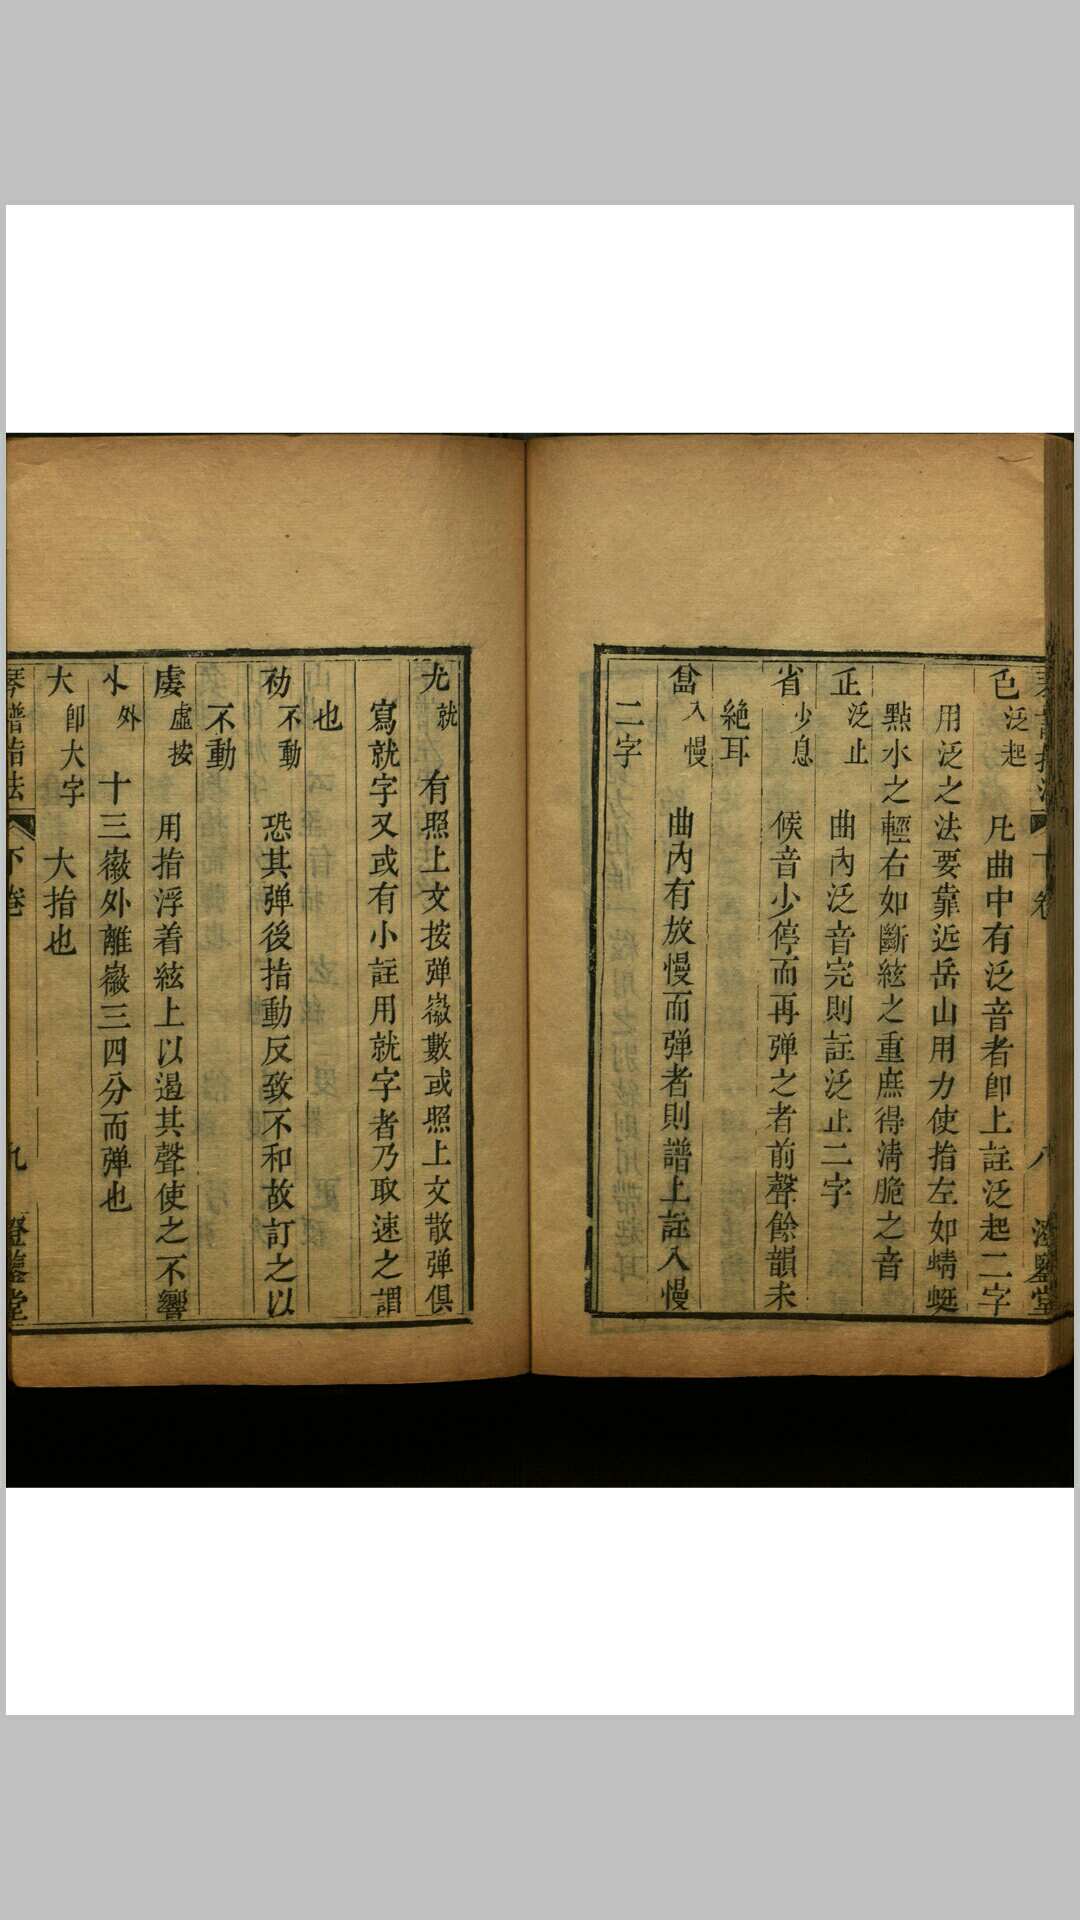 色 泛起 凡曲中有泛音者卽上註泛起二字
用泛之法要靠近岳山用力使指左如蜻蜓
點水之輕右如斷絃之重庶得淸脆之音
正 泛止 曲內泛音完則註泛止二字
省 少息 候音少停而再弹之者前聲餘韻未
絕耳
畣 入慢 曲內有放慢而弹者則譜上註入慢
二字
尤 就 有照上文按弹徽數或照上文散弹俱
寫就字又或有小註用就字者乃取速之謂
也
不動 恐其弹後指動反致不和故訂之以
不動
虗 虛按 用指浮着絃上以遏其聲使之不響
外 十三徽外離徽三四分而弹也
大 卽大字 大指也
琴譜指法 下卷 九 澄鑒堂